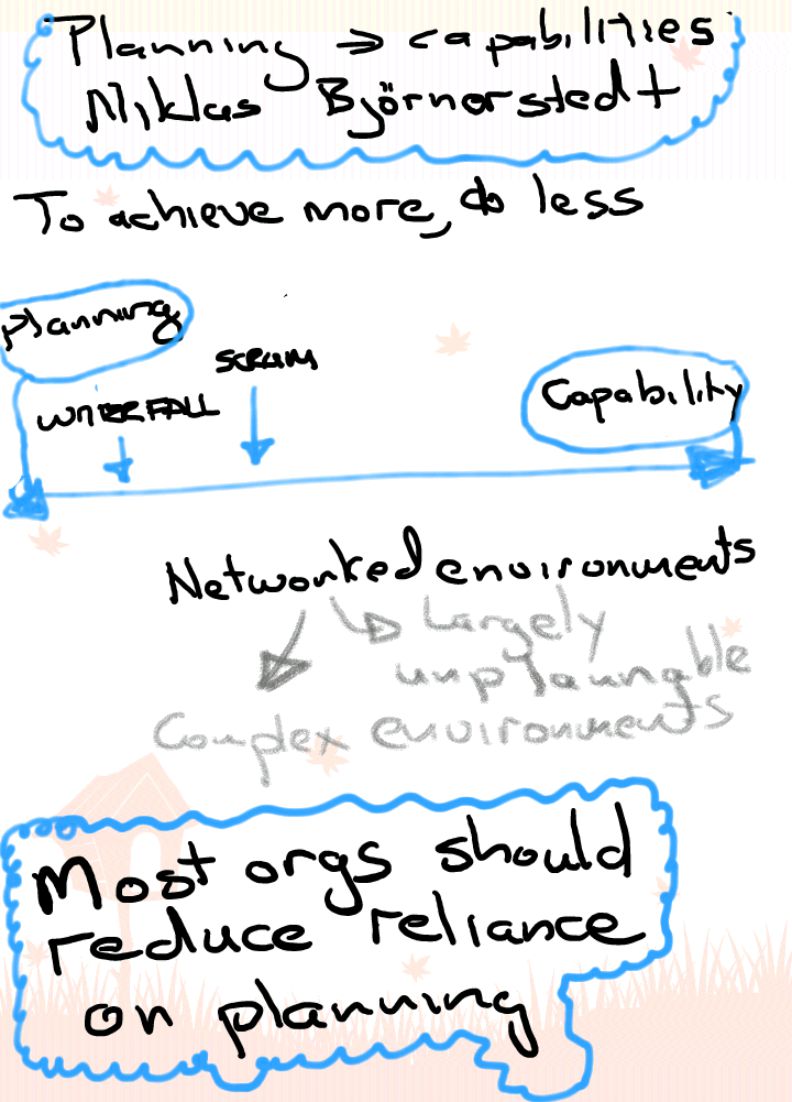 Planning → capabilities
Niklas Björnerstedt
To achieve more, do less
Planning
SCRUM
WATERFALL
Capability
Networked environments
Largely
unplannable
Complex environments
Most orgs should
reduce reliance
on planning